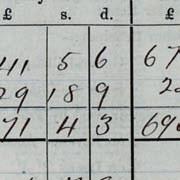 £ s. d. £
41 5 6 67
29 18 9 2
71 4 3 696